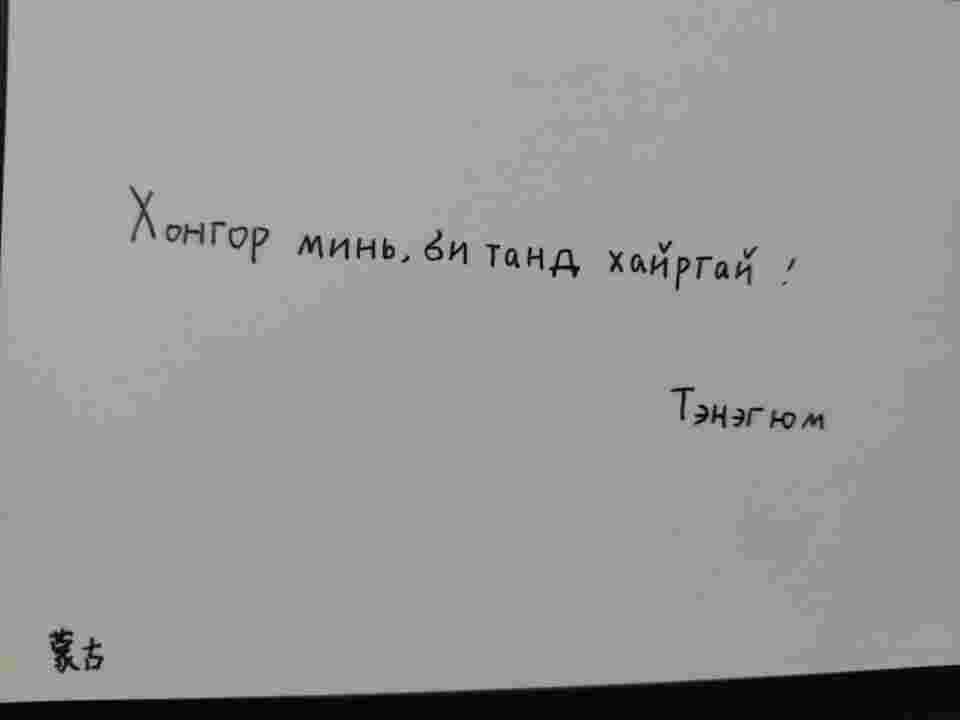 Хонгор минь, би танд хайргай !
Тэнэгюм
蒙古